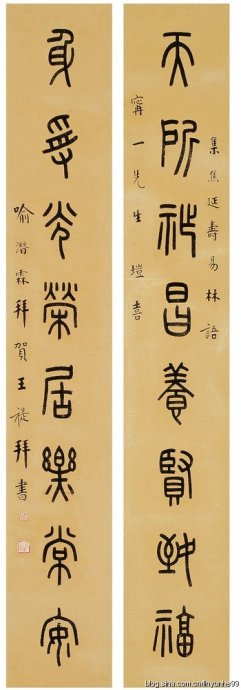 集焦延壽易林語
天所祚昌養賢致福
甯一先生喜
身受光榮居樂常安
喻潛霖拜賀王禔拜書
blog.sina.com.cn/linyunhe99